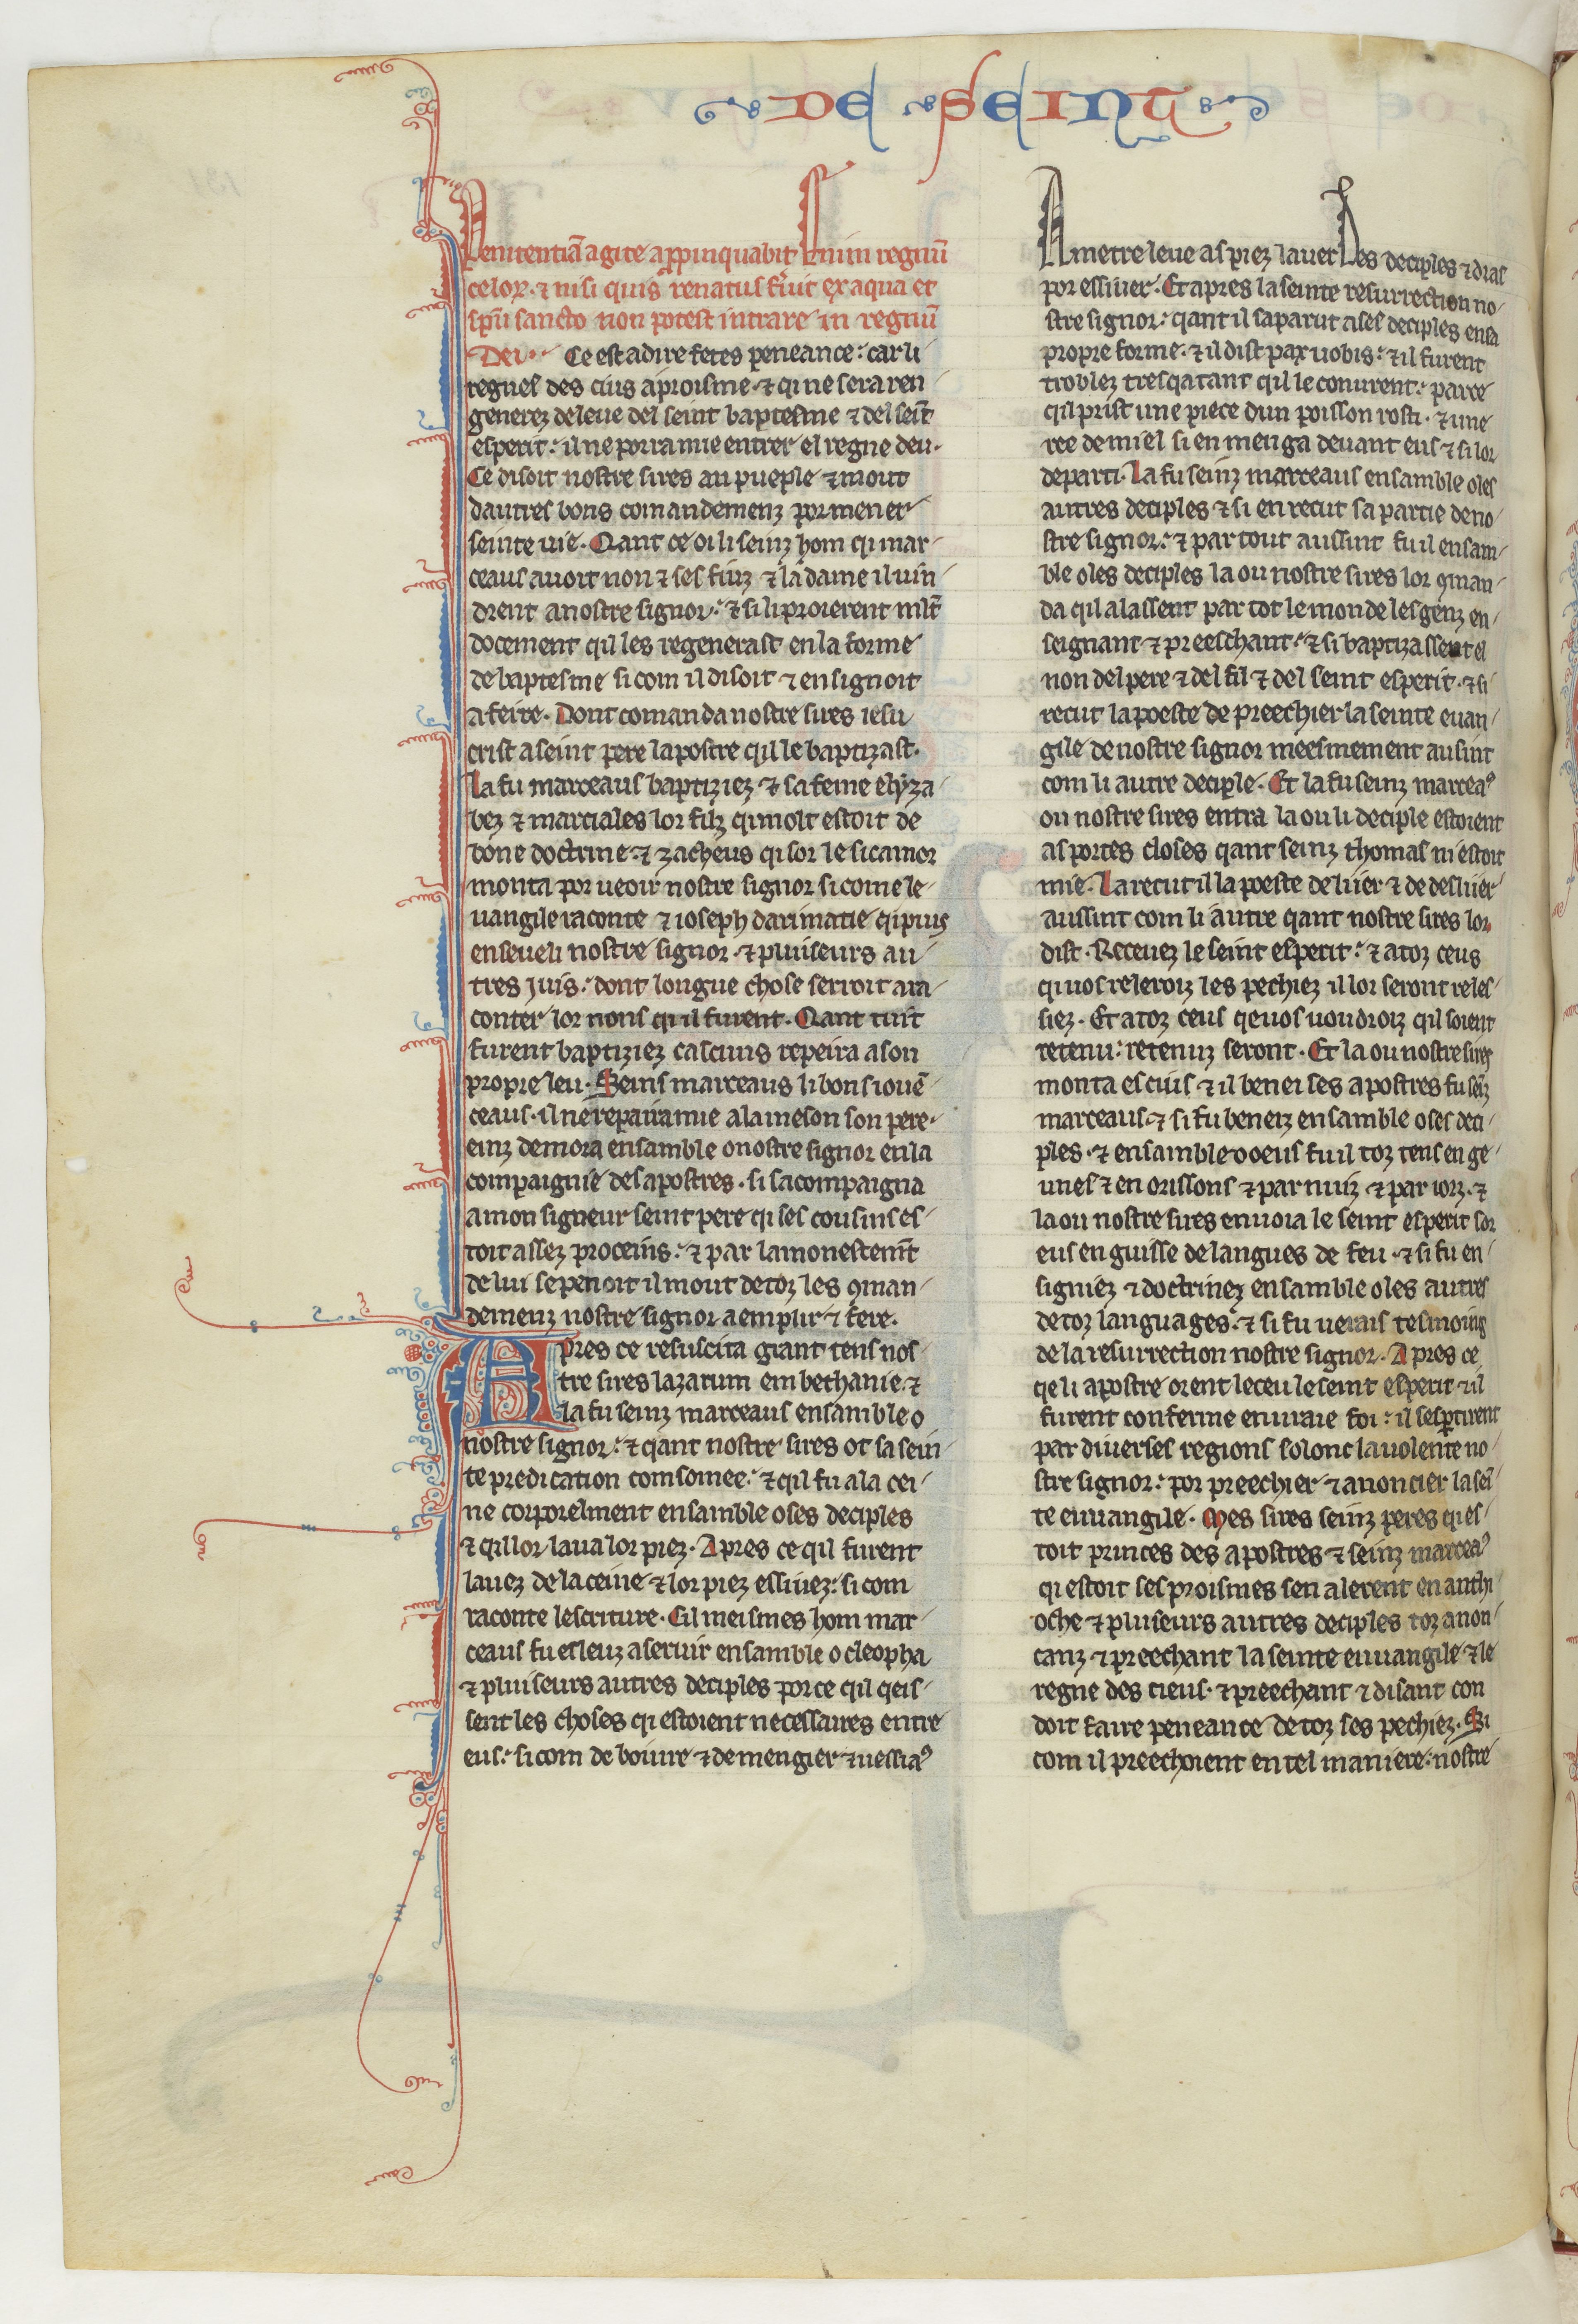 DE SEINT
Penitentiã agite appinquabit enim regnũ
celoꝝ. ⁊ nisi quis renatus fũit ex aqua et
sp̃u sancto non potest intrare in regnũ
Dei. Ce est a dire fetes peneance: car li
regnes des cius aproisme. ⁊ qi ne sera ren
generez de leue del seint baptesme ⁊ del seĩt
esperit: il ne porra mie entrer el regne deu.
Ce disoit nostre sires au pueple ⁊ mout
dautres bons comandemenz por mener
seinte uie. Qant ce oi li seinz hom qi mar
ceaus auoit non ⁊ ses filz ⁊ la dame il uin
drent a nostre signor: ⁊ si li proierent ml̃t
docement qil les regenerast en la forme
de baptesme si com il disoit ⁊ ensignoit
a feire. Dont comanda nostre sires iesu
crist a seint pere lapostre qil le baptizast.
La fu marceaus baptiziez ⁊ sa feme elyza
bez ⁊ marciales lor filz qi molt estoit de
bone doctrine. ⁊ zacheus qi sor le sicamor
monta por ueoir nostre signor si come le
uangile raconte ⁊ ioseph darimatie qi puis
enseueli nostre signor. ⁊ pluiseurs au
tres juis: dont longue chose serroit a ra
conter lor nons qi il furent. Qant tuit
furent baptiziez cascuns repeira a son
propre leu. Seins marceaus li bons iouẽ
ceaus. il ne repaira mie a la meson son pere.
einz demora ensamble o nostre signor en la
compaignie des apostres. si sacompaigna
a mon signeur seint pere qi ses cousins es
toit assez proceins: ⁊ par lamonestem̃t
de lui se penoit il mout de toz les ꝯman
demenz nostre signor a emplir ⁊ fere.
Apres ce resuscita grant tens nos
tre sires lazarum em bethanie. ⁊
la fu seinz marceaus ensamble o
nostre signor: ⁊ qant nostre sires ot sa sein
te predication comsomee: ⁊ qil fu a la cei
ne corporelment ensamble o ses deciples
⁊ qil lor laua lor piez. Apres ce qil furent
lauez de la ceine ⁊ lor piez essiuez: si com
raconte lescriture. Cil meismes hom mar
ceaus fu esleuz a seruir ensamble o cleopha
⁊ pluiseurs autres deciples por ce qil qeis
sent les choses qi estoient necessaires entre
eus: si com de boiure ⁊ de mengier ⁊ uessiaꝰ
A metre leue as piez lauer des deciples ⁊ dras
por essiuer. Et apres la seinte resurrection no
stre signor: qant il saparut a ses deciples en sa
propre forme. ⁊ il dist pax uobis: ⁊ il furent
troblez tresqa tant qil le conurent: par ce
qil prist une piece dun poisson rosti. ⁊ une
ree de miel si en menga deuant eus ⁊ si lor
departi. La fu seinz marceaus ensamble o les
autres deciples ⁊ si en recut sa partie de no
stre signor: ⁊ par tout aussint fu il ensam
ble o les deciples la ou nostre sires lor ꝯman
da qil alassent par tot le monde les genz en
seignant ⁊ preeschant: ⁊ si baptizassent el
non del pere ⁊ del fil ⁊ del seint esperit. ⁊ si
recut la poeste de preechier la seinte euan
gile de nostre signor meesmement ausint
com li autre deciple. Et la fu seinz marceaꝰ
ou nostre sires entra la ou li deciple estoient
as portes closes qant seinz thomas ni estoit
mie. La recut il la poeste de lïer ⁊ de deslïer
aussint com li autre qant nostre sires lor
dist. Receuez le seint esperit: ⁊ a toz ceus
qi uos releroiz les pechiez il lor seront reles
siez. Et a toz ceus qe uos uoudroiz qil soient
retenu: retenuz seront. Et la ou nostre sires
monta es cuis ⁊ il benei ses apostres fu seĩz
marceaus. ⁊ si fu beneiz ensamble o ses deci
ples. ⁊ ensamble o oeus fu il toz tens en ge
unes ⁊ en orissons ⁊ par nuiz ⁊ par iorz. ⁊
la ou nostre sires enuoia le seint esperit sor
eus en guisse de langues de feu. ⁊ si fu en
signiez ⁊ doctrinez ensamble o les autres
de toz languages. ⁊ si fu uerais tesmoing
de la resurrection nostre signor. Apres ce
qe li apostre orent leceu le seint esperit ⁊ il
furent conferme en uraie foi: il sesꝑtirent
par diuerses regions solonc la uolente no
stre signor: por preechier ⁊ anoncier la sei
te euuangile. Mes sires seinz peres qi es
toit princes des apostres ⁊ seinz marceaꝰ
qi estoit ses proismes sen alerent en anthi
oche ⁊ pluiseurs autres deciples toz anon
canz ⁊ preechant la seinte euuangile ⁊ le
regne des cieus. ⁊ preechant ⁊ disant con
doit faire peneance de toz ses pechiez. Si
com il preechoient en tel maniere: nostre